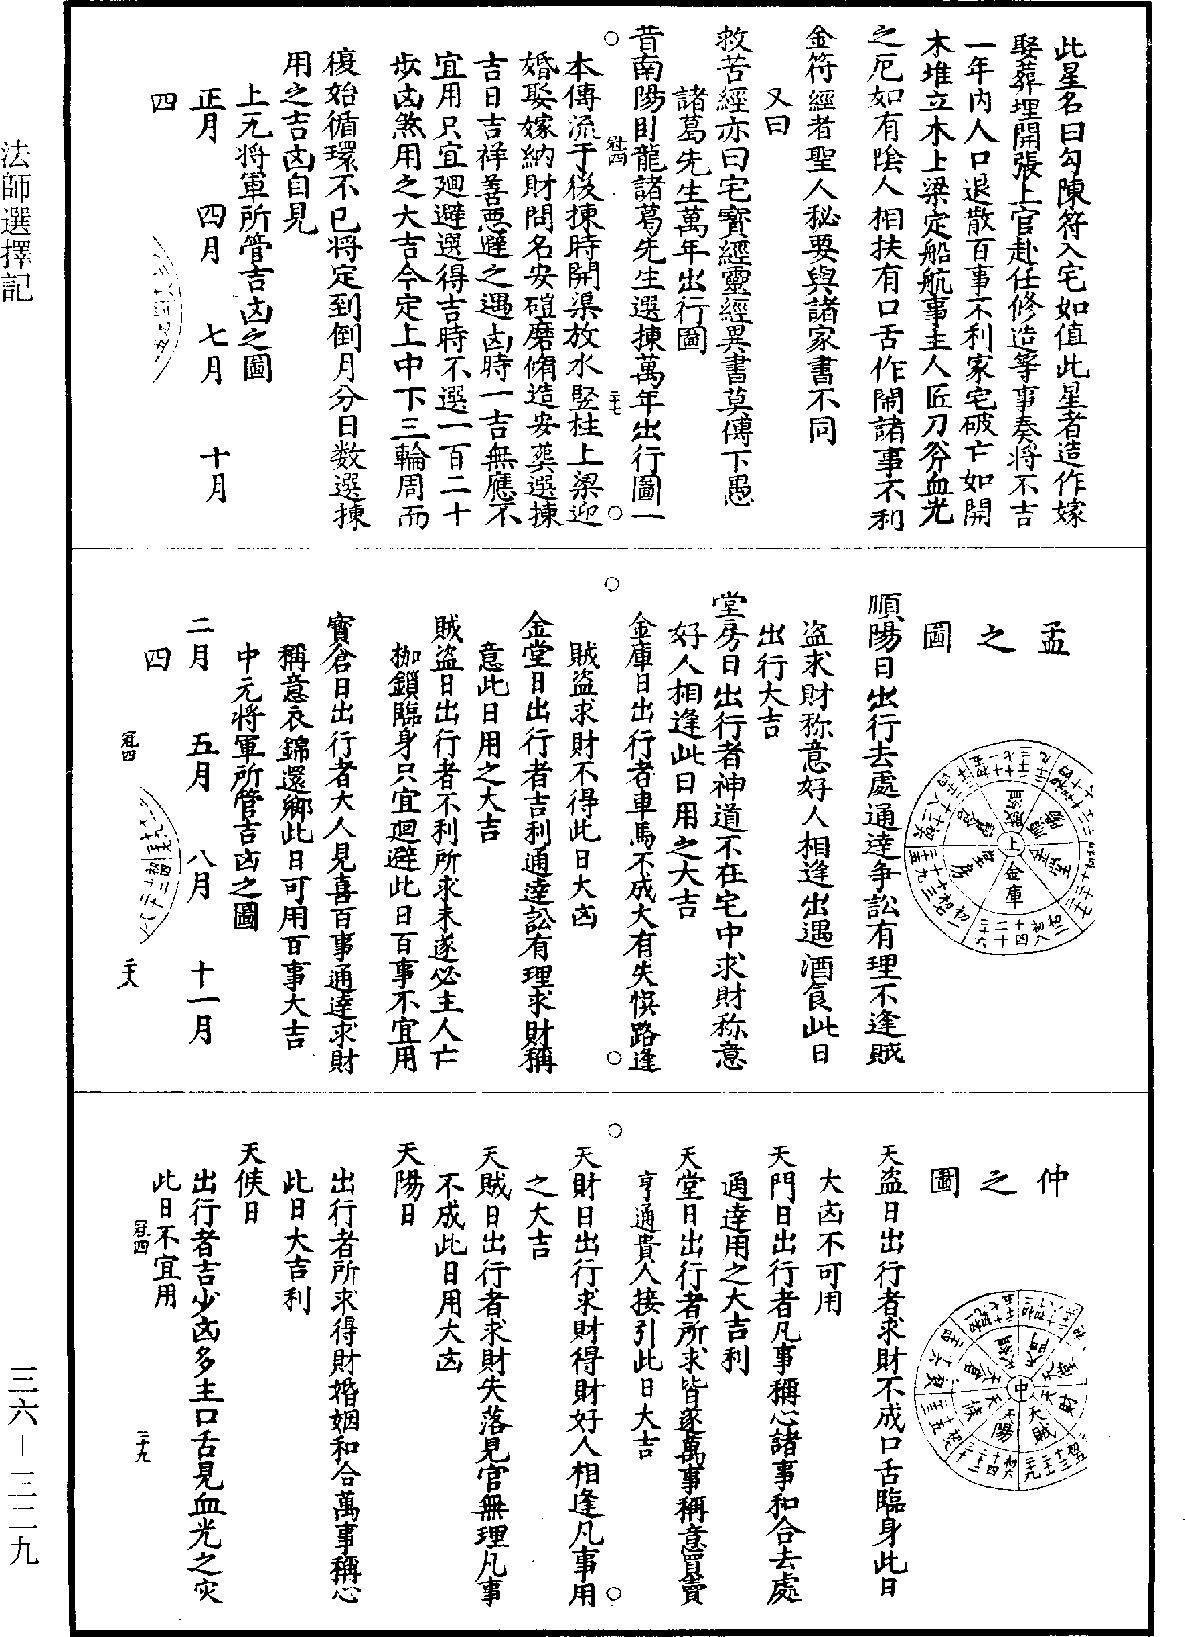 此星名曰勾陳符入宅如值此星者造作嫁
娶葬埋開張上官赴任修造等事奏將不吉
一年內人口退散百事不利家宅破亡如開
木堆立木上梁定船航事主人匠刀斧血光
之厄如有陰人相扶有口舌作鬧諸事不利
金符經者聖人秘要與諸家書不同
又曰
救苦經亦曰宅寶經靈經異書莫傳下愚
諸葛先生萬年出行圖
昔南陽卧龍諸葛先生選揀萬年出行圖一
冠四
二十七
本傳流于後揀時開渠放水竪柱上梁迎
婚娶嫁納財問名安磑磨脩造安葬選揀
吉日吉祥善惡避之遇凶時一吉無應不
宜用只宜廻避選得吉時不選一百二十
步凶煞用之大吉今定上中下三輪周而
復始循環不已將定到倒月分日数選揀
用之吉凶自見
上元将軍所管吉凶之圖
正月 四月 七月 十月
四
孟之圖
上
金庫
順陽日出行去處通達爭訟有理不逢賊
盗求財称意好人相逢出遇酒食此日
出行大吉
堂房日出行者神道不在宅中求財称意
好人相逢此日用之大吉
金庫日出行者車馬不成大有失悞路逢
賊盗求財不得此日大凶
金堂日出行者吉利通達訟有理求財稱
意此日用之大吉
賊盗日出行者不利所求未遂必主人亡
枷鎖臨身只宜廻避此日百事不宜用
寶倉日出行者大人見喜百事通達求財
稱意衣錦還鄉此日可用百事大吉
中元將軍所管吉凶之圖
二月 五月 八月 十一月
四
冠四
二十八
仲之圖
中
天門
天賊
天陽
天候
天盗
天盗日出行者求財不成口舌臨身此日
大凶不可用
天門日出行者凡事稱心諸事和合去處
通達用之大吉利
天堂日出行者所求皆遂萬事稱意買賣
亨通貴人接引此日大吉
天財日出行求財得財好人相逢凡事用
之大吉
天賊日出行者求財失落見官無理凡事
不成此日用大凶
天陽日
出行者所求得財婚姻和合萬事稱心
此日大吉利
天候日
出行者吉少凶多主口舌見血光之灾
此日不宜用
冠四
二十九
法師選擇記
三六－三二九